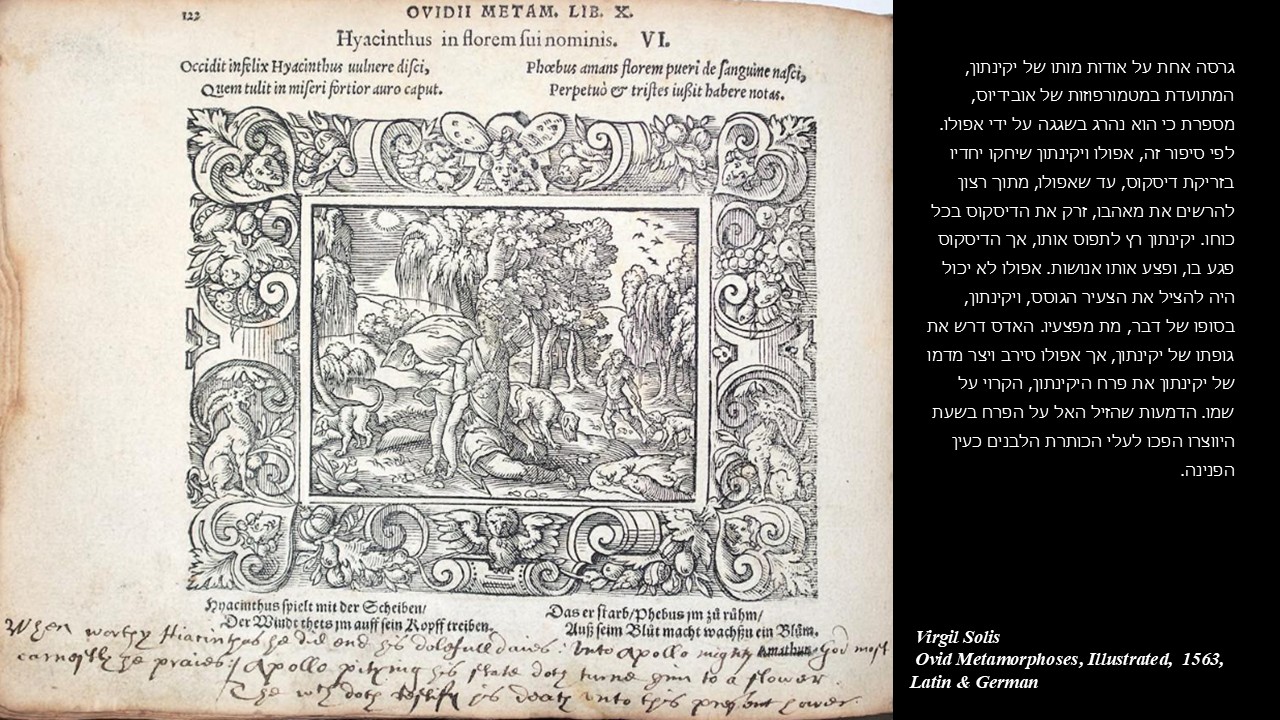 122
OVIDII METAM. LIB. X.
Hyacinthus in florem sui nominis. VI.
Occidit infelix Hyacinthus uulnere disci,
Quem tulit in miseri fortior auro caput.
Phœbus amans florem pueri de sanguine nasci,
Perpetuò & tristes iußit habere notas.
Hyacinthus spielt mit der Scheiben/
Der Windt thets jm auff sein Kopff treiben.
Das er starb/Phebus jm zů růhm/
Auß seim Blůt macht wachßn ein Blům.
When worthy Hiacinthus he did end his dolefull daies: Unto Apollo mighty God most
earnestly he praies: Apollo pitying his state doth turne him to a flower
The wch doth his death unto this present hower.
גרסה אחת על אודות מותו של יקינתון,
המתועדת במטמורפוזות של אובידיוס,
מספרת כי הוא נהרג בשגגה על ידי אפולו.
לפי סיפור זה, אפולו ויקינתון שיחקו יחדיו
בזריקת דיסקוס, עד שאפולו, מתוך רצון
להרשים את מאהבו, זרק את הדיסקוס בכל
כוחו. יקינתון רץ לתפוס אותו, אך הדיסקוס
פגע בו, ופצע אותו אנושות. אפולו לא יכול
היה להציל את הצעיר הגוסס, ויקינתון,
בסופו של דבר, מת מפצעיו. האדס דרש את
גופתו של יקינתון, אך אפולו סירב ויצר מדמו
של יקינתון את פרח היקינתון, הקרוי על
שמו. הדמעות שהזיל האל על הפרח בשעת
היווצרו הפכו לעלי הכותרת הלבנים כעין
הפנינה.
Virgil Solis
Ovid Metamorphoses, Illustrated, 1563,
Latin & German